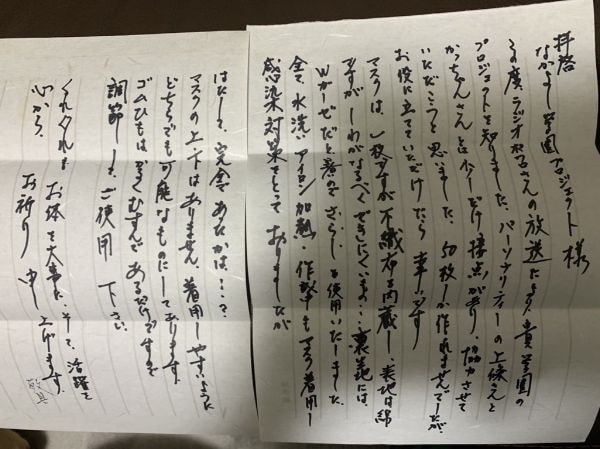 拝啓
なかよし学園プロジェクト様
この度、ラジオ
さんの放送により、貴学園の
プロジェクトを知りました。パーソナリティーの上
かっちゃんさんとは少しだけ接点があり、協力させて
いただこうと思いました。50枚しか作れませんでしたが、
お役に立てていただけたら幸いです
マスクは、一枚ですが不織布を内蔵し、表地は綿
ですが、しわがなるべくできにくいもの・・、裏地には、
Wガーゼだと暑いので、さらしを使用いたしました。
全て、水洗い、アイロン加熱、作製中もマスク着用し
感染対策をとっておりましたが
はたして、完全であったかは・・・?
マスクの上下はありません、着用しやすいように
どちらでも可能なものにしてあります。
ゴムひもはかるくむすんであるだけですので
調節してご使用下さい。
くれぐれもお体を大事に、そして、活躍を
心から、お祈り申し上げます。
敬具